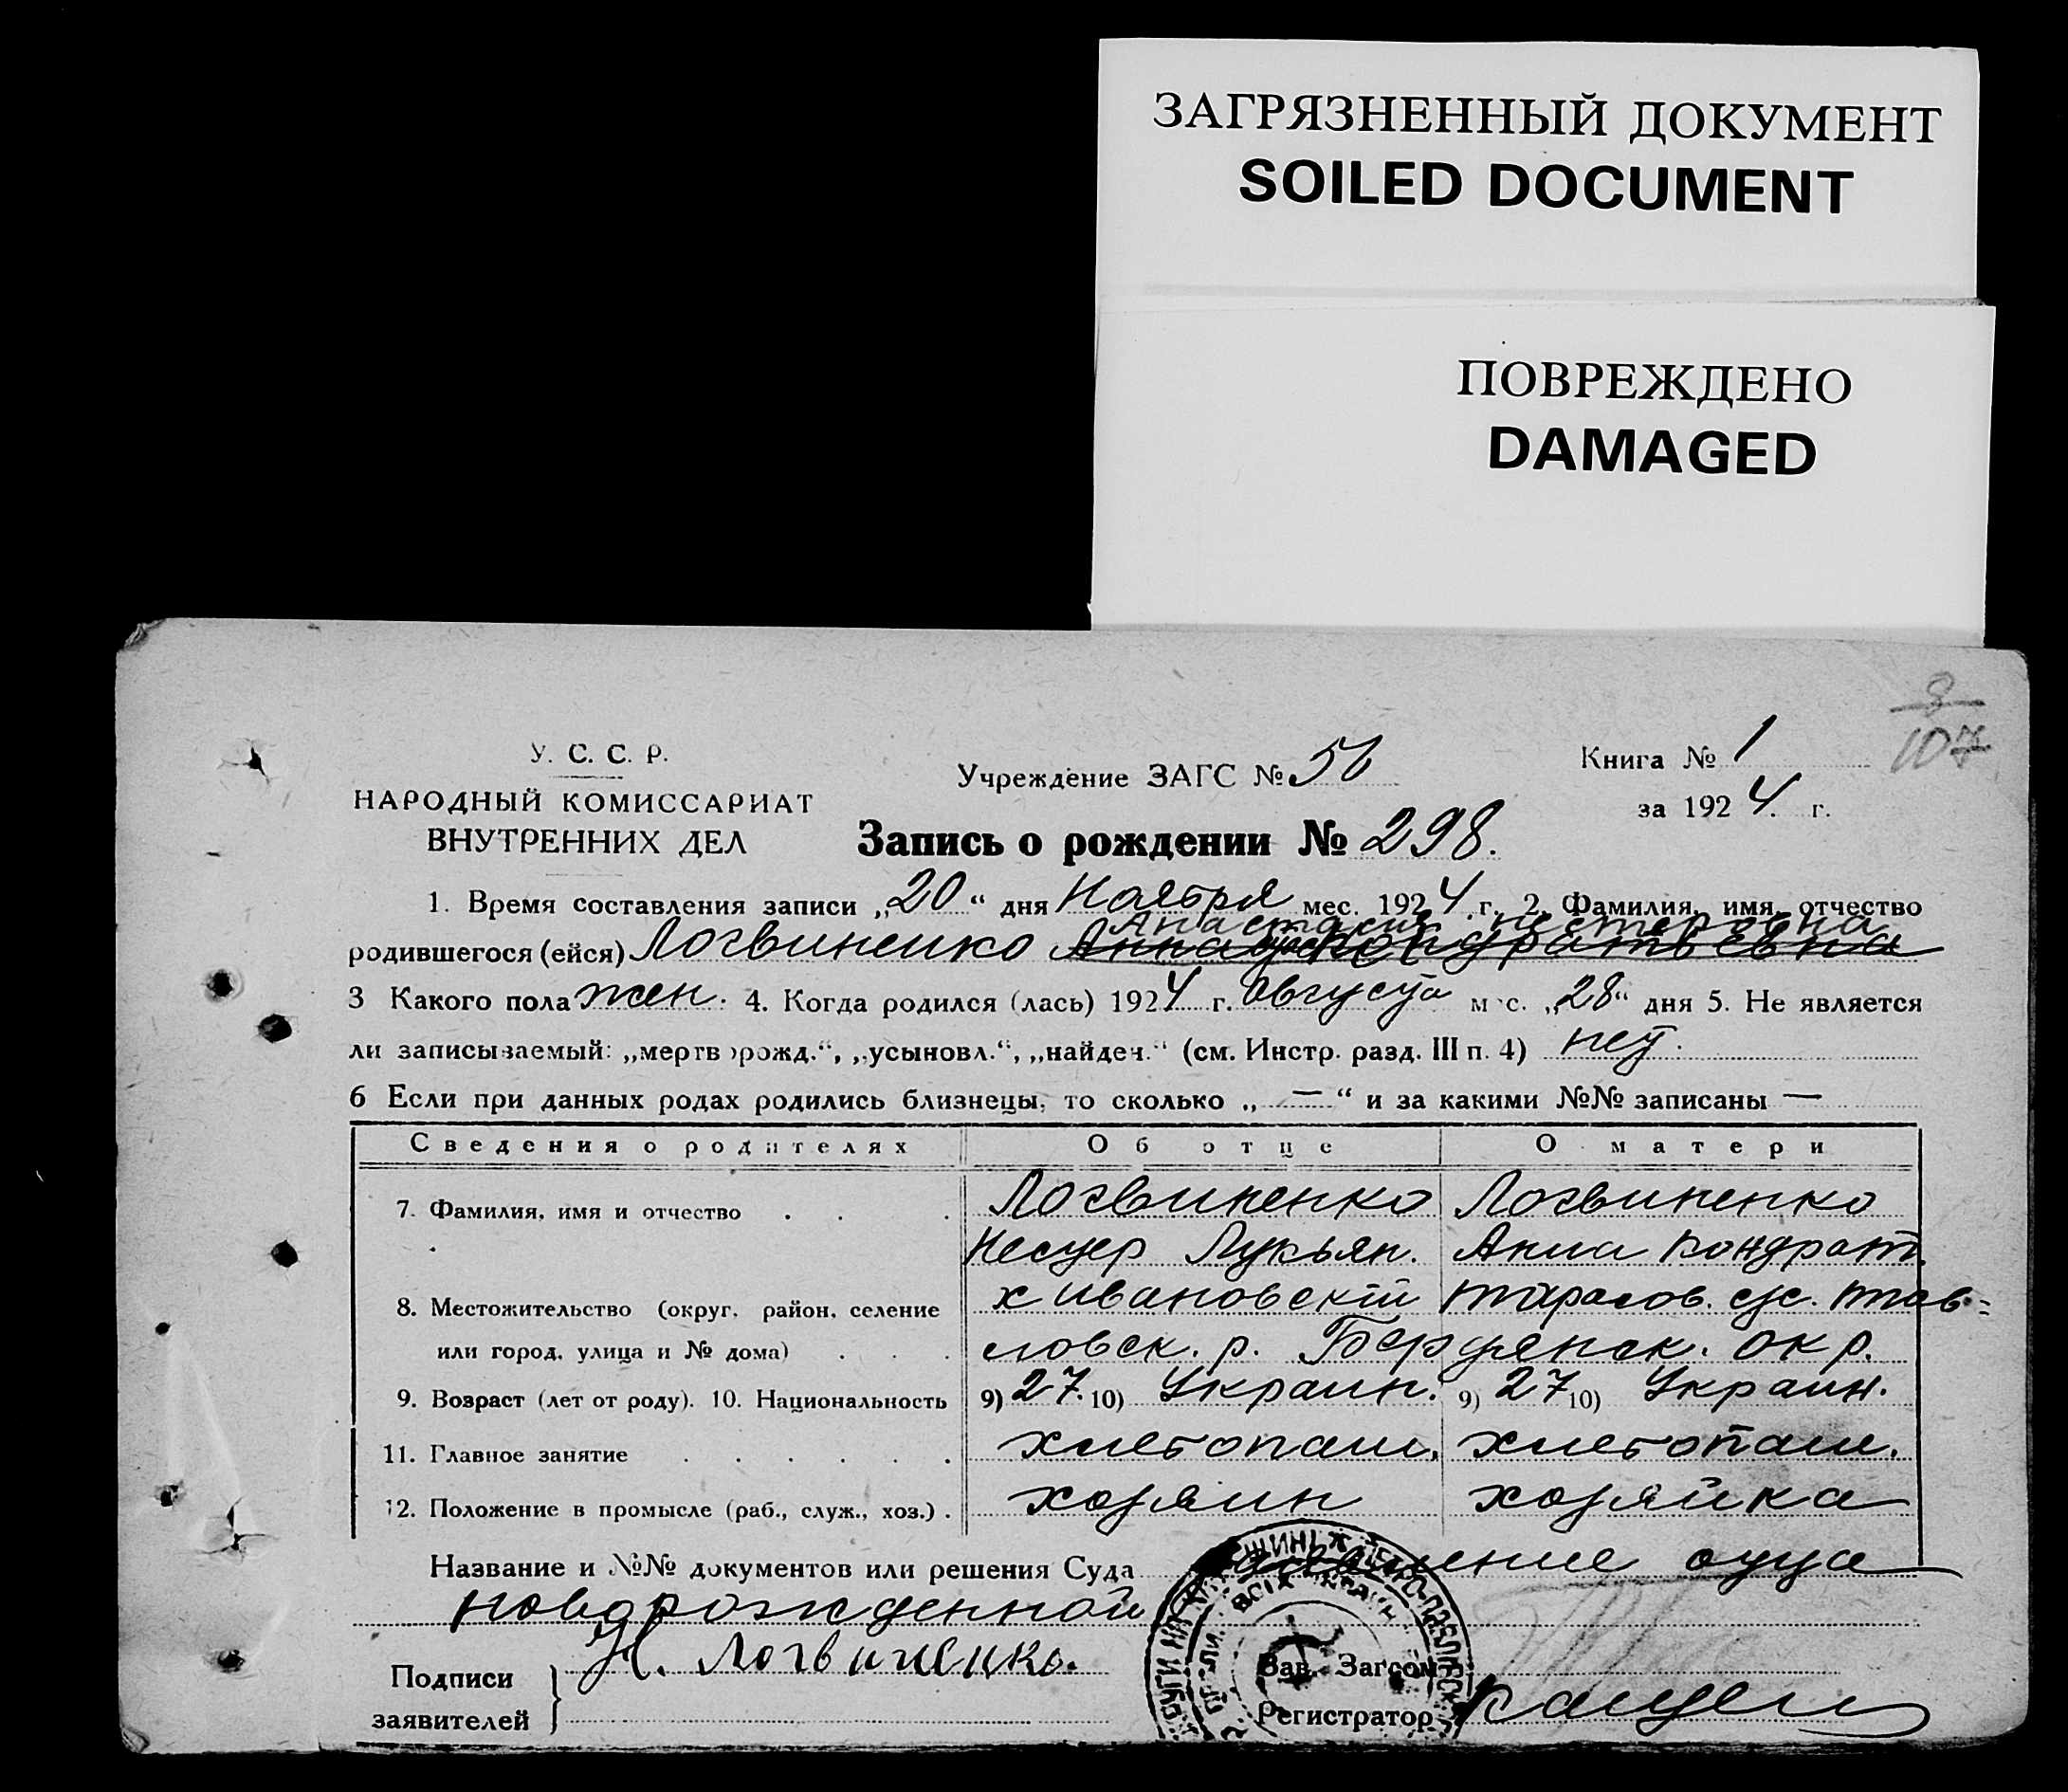 ЗАГРЯЗНЕННЫЙ ДОКУМЕНТ
SOILED DOCUMENT
ПОВРЕЖДЕНО
DAMAGED
8
107
У. С. С. Р.
НАРОДНЫЙ КОМИССАРИАТ
ВНУТРЕННИХ ДЕЛ
Учреждение ЗАГС № 56
Книга № 1
за 1924 г.
Запись о рождении № 298.
1. Время составления записи „20“ дня Ноября мес. 1924 г. 2. Фамилия, имя, отчество
Анастасия Нестеровна
родившегося (ейся) Логвиненко Анна Кондратьевна
3 Какого пола жен. 4. Когда родился (лась) 1924 г. Августа мес. „28“ дня 5. Не является
ли записываемый: „мертворожд.“, „усыновл.“, „найден.“ (см. Инстр. разд. III п. 4) нет.
6 Если при данных родах родились близнецы, то сколько „—“ и за какими №№ записаны —
Сведения о родителях Об отце О матери
7. Фамилия, имя и отчество . . . Логвиненко Логвиненко
Нестер Лукьян. Анна Кондрат.
8. Местожительство (округ, район, селение х Ивановский Тарасов. с/с. Пав=
или город, улица и № дома) . . . ловск. р. Бердянск. окр.
9. Возраст (лет от роду). 10. Национальность 9) 27. 10) Украин. 9) 27 10) Украин.
11. Главное занятие . . . . . . хлебопаш. хлебопаш.
12. Положение в промысле (раб., служ., хоз.) . хозяин хозяйка
Название и №№ документов или решения Суда заявление отца
новорожденной
Подписи
заявителей
Н. Логвиненко.
Зав. Загсом
Регистратор